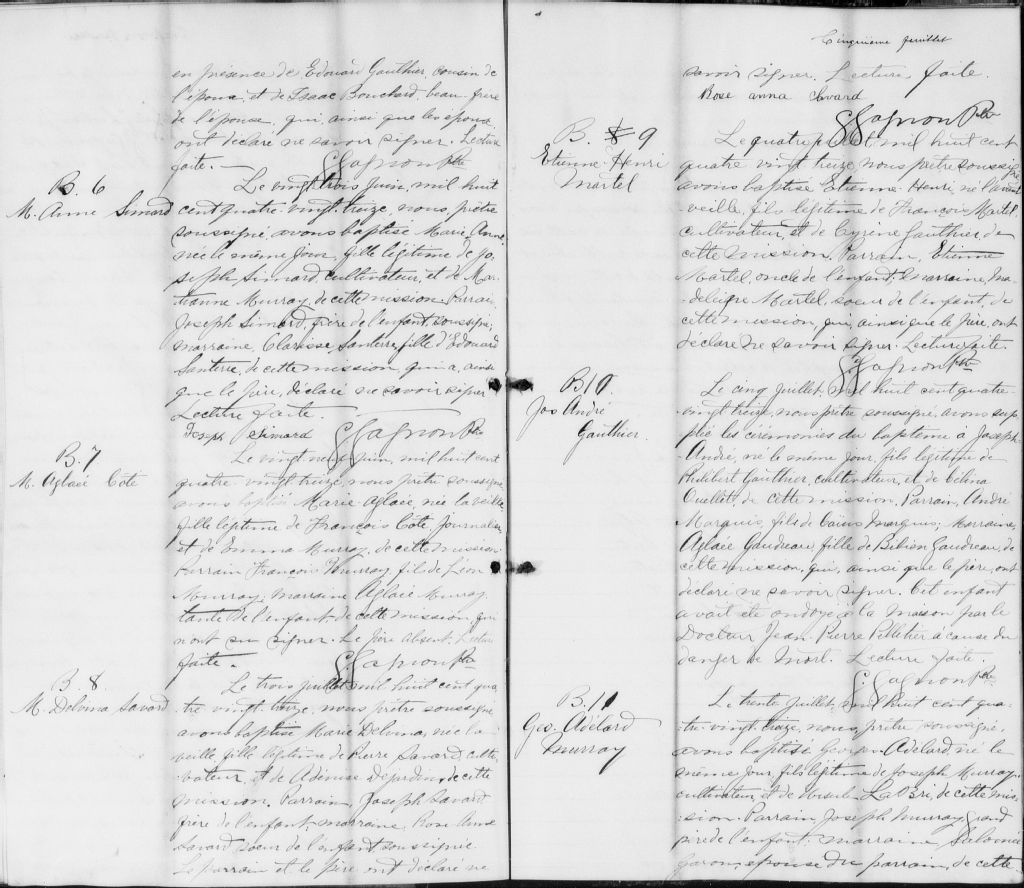 en présence de Edouard Gauthier, cousin de
l'époux, et de Isaac Bouchard, beau-frère
de l'épouse, qui, ainsi que les époux
ont déclaré ne savoir signer. Lecture
faite.
Gagnon Ptre
B. 6
M. Anne Simard
Le vingt trois Juin, mil huit
cent quatre-vingt-treize, nous, prêtre
soussigné, avons baptisé Marie Anne,
née le même jour, fille légitime de Jo-
seph Simard, cultivateur, et de Mar-
ianne Murray, de cette mission. Parrain
Joseph Simard, frère de l'enfant, soussigné;
marraine, Clarisse Santerre, fille d'Edouard
Santerre, de cette mission, qui a, ainsi
que le père, déclaré ne savoir signer
Lecture faite.
Joseph Simard Gagnon Ptre
B. 7
M. Aglaée Coté
Le vingt neuf Juin, mil huit cent
quatre-vingt treize, nous prêtre soussigné
avons baptisé Marie Aglaée, née la veille
fille légitime de François Coté, journalier
et de Emma Murray, de cette mission
Parrain François Murray, fils de Léon
Murray; marraine Aglaée Murray
tante de l'enfant, de cette mission, qui
n'ont su signer. Le père absent. Lecture
faite.
Gagnon Ptre
B. 8.
M. Delvina Savard
Le trois juillet mil huit cent qua-
tre-vingt-treize, nous prêtre soussigné
avons baptisé Marie Delvina, née la
veille, fille légitime de Pierre Savard, culti-
vateur, et de Adénise Desjardins, de cette
mission. Parrain, Joseph Savard
frère de l'enfant; marraine, Rose Anna
Savard soeur de l'enfant soussignée.
Le parrain et le père ont déclaré ne
Cinquième feuillet
savoir signer. Lecture faite.
Rose anna Savard
Gagnon Ptre
B. 9
Etienne-Henri
Martel
Le quatre juillet mil huit cent
quatre vingt treize nous prêtre soussigné
avons baptisé Etienne-Henri, né l'avant
veille, fils légitime de François Martel,
cultivateur, et de Cyrène Gauthier de
cette mission. Parrain, Etienne
Martel, oncle de l'enfant, marraine, Ma-
deleine Martel, soeur de l'enfant, de
cette mission, qui, ainsi que le père, ont
déclaré ne savoir signer. Lecture faite.
Gagnon Ptre
B. 10.
Jos André
Gauthier.
Le cinq juillet, mil huit cent quatre-
vingt treize, nous prêtre soussigné, avons sup-
plée les cérémonies du baptême à Joseph-
André, né le même jour, fils légitime de
Philibert Gauthier, cultivateur, et de Célina
Ouellet, de cette mission. Parrain, André
Marquis, fils de Caïus Marquis; Marraine,
Aglaée Gaudreau fille de Bibien Gaudreau, de
cette mission, qui, ainsi que le père, ont
déclaré ne savoir signer. Cet enfant
avait été ondoyé à la maison par le
Docteur Jean Pierre Pelletier à cause du
danger de mort. Lecture faite.
Gagnon Ptre
B. 11
Geo. Adélard
Murray
Le trente Juillet, mil huit cent qua-
tre-vingt-treize, nous, prêtre soussigné,
avons baptisé Georges Adélard, né le
même jour, fils légitime de Joseph Murray,
cultivateur, et de Ursule LaBri, de cette mis-
sion. Parrain Joseph Murray grand
père de l'enfant; marraine Salomée
Caron, épouse du parrain, de cette